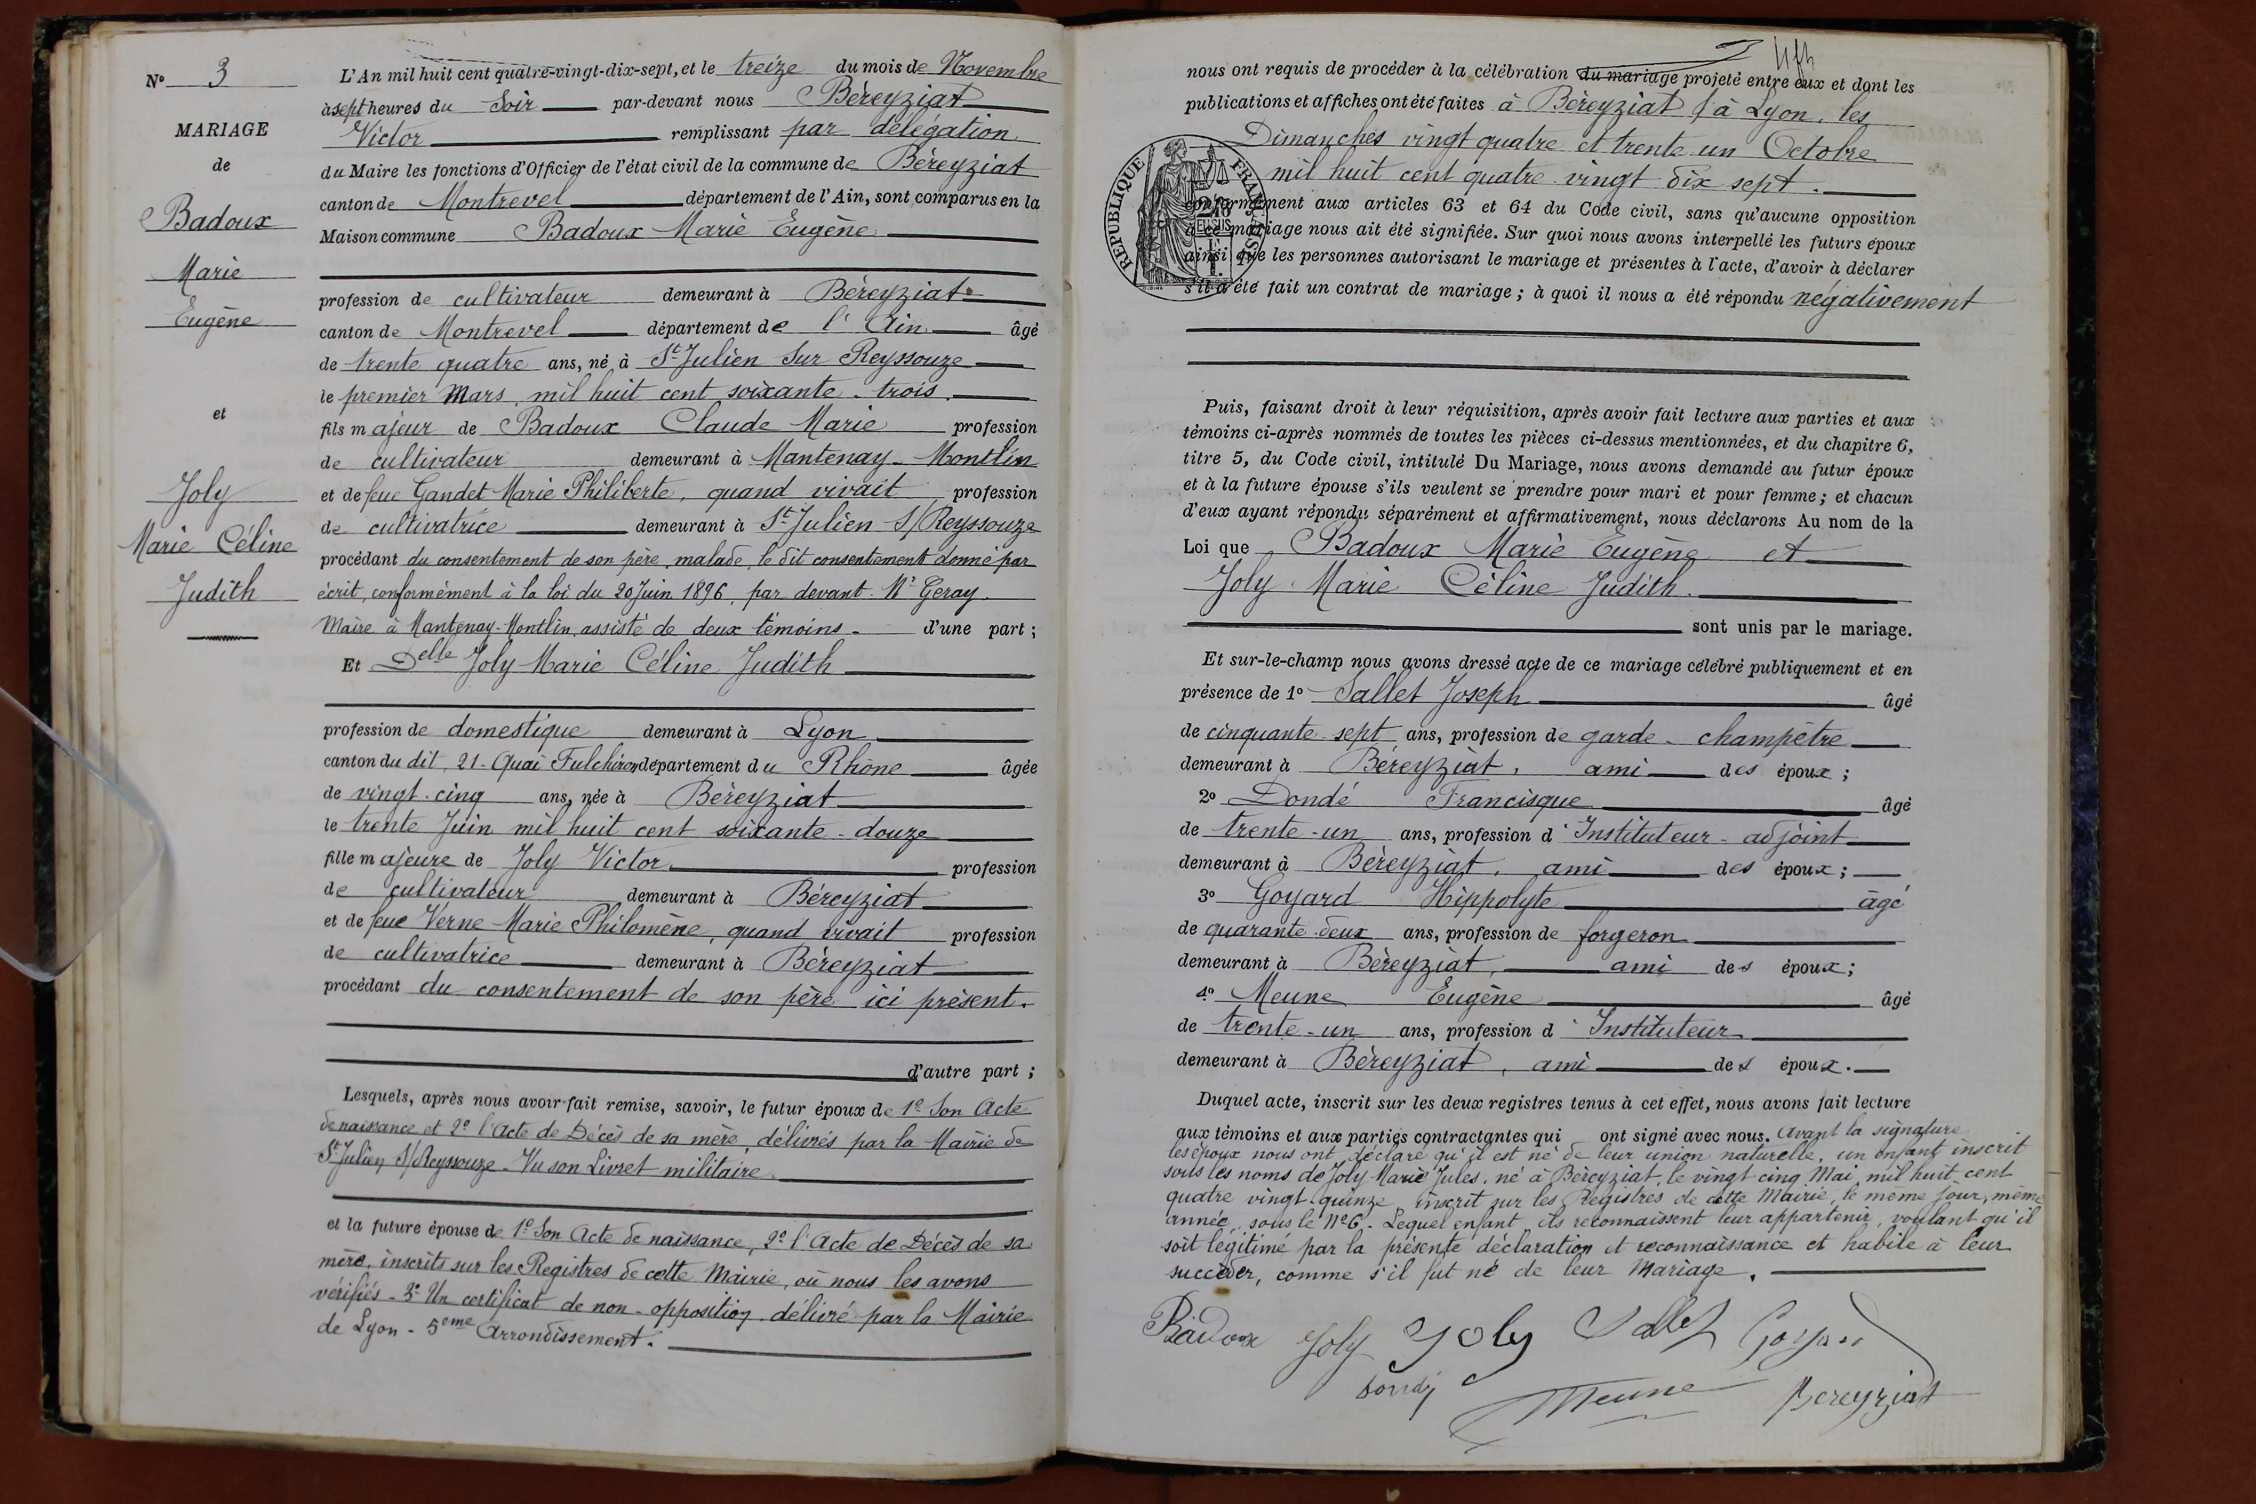 N° 3
MARIAGE
de
Badoux
Marie
Eugène
et
Joly
Marie Céline
Judith
L'An mil huit cent quatre-vingt-dix-sept, et le treize du mois de Novembre
à sept heures du Soir par-devant nous Béreyziat
Victor remplissant par délégation
du Maire les fonctions d'Officier de l'état civil de la commune de Béreyziat
canton de Montrevel département de l'Ain, sont comparus en la
Maison commune Badoux Marie Eugène
profession de cultivateur demeurant à Béreyziat
canton de Montrevel département de l'Ain âgé
de trente quatre ans, né à St Julien Sur Reyssouze
le premier Mars mil huit cent soixante-trois.
fils majeur de Badoux Claude Marie profession
de cultivateur demeurant à Mantenay-Montlin
et de feue Gandet Marie Philiberte, quand vivait profession
de cultivatrice demeurant à St Julien S/Reyssouze
procédant du consentement de son père, malade, le dit consentement donné par
écrit, conformément à la loi du 20 Juin 1896, par devant Mr Geray.
Maire à Mantenay-Montlin, assisté de deux témoins. d'une part ;
Et Delle Joly Marie Céline Judith
profession de domestique demeurant à Lyon
canton du dit, 21. Quai Fulchiron département du Rhône âgée
de vingt-cinq ans, née à Béreyziat
le trente Juin mil huit cent soixante-douze
fille majeure de Joly Victor profession
de cultivateur demeurant à Béreyziat
et de feue Verne Marie Philomène, quand vivait profession
de cultivatrice demeurant à Béreyziat
procédant du consentement de son père ici présent.
d'autre part ;
Lesquels, après nous avoir fait remise, savoir, le futur époux de 1° Son Acte
de naissance et 2° l'Acte de Décès de sa mère, délivrés par la Mairie de
St Julien S/Reyssouze - Vu son Livret militaire.
et la future épouse de 1° Son Acte de naissance, 2° l'Acte de Décès de sa
mère, inscrits sur les Registres de cette Mairie, où nous les avons
vérifiés - 3° Un certificat de non-opposition délivré par la Mairie
de Lyon - 5eme Arrondissement.
nous ont requis de procéder à la célébration du mariage projeté entre eux et dont les
publications et affiches ont été faites à Béreyziat & à Lyon, les
Dimanches vingt quatre et trente un Octobre
mil huit cent quatre-vingt dix sept.
RÉPUBLIQUE FRANÇAISE
conformément aux articles 63 et 64 du Code civil, sans qu'aucune opposition
à ce mariage nous ait été signifiée. Sur quoi nous avons interpellé les futurs époux
ainsi que les personnes autorisant le mariage et présentes à l'acte, d'avoir à déclarer
s'il a été fait un contrat de mariage ; à quoi il nous a été répondu négativement
Puis, faisant droit à leur réquisition, après avoir fait lecture aux parties et aux
témoins ci-après nommés de toutes les pièces ci-dessus mentionnées, et du chapitre 6,
titre 5, du Code civil, intitulé Du Mariage, nous avons demandé au futur époux
et à la future épouse s'ils veulent se prendre pour mari et pour femme ; et chacun
d'eux ayant répondu séparément et affirmativement, nous déclarons Au nom de la
Loi que Badoux Marie Eugène et
Joly Marie Céline Judith.
sont unis par le mariage.
Et sur-le-champ nous avons dressé acte de ce mariage célébré publiquement et en
présence de 1° Sallet Joseph âgé
de cinquante-sept ans, profession de garde-champêtre
demeurant à Béreyziat, ami des époux ;
2° Dondé Francisque âgé
de trente-un ans, profession d'Instituteur-adjoint
demeurant à Béreyziat, ami des époux ;
3° Goyard Hippolyte âgé
de quarante-deux ans, profession de forgeron
demeurant à Béreyziat, ami des époux ;
4° Meune Eugène âgé
de trente-un ans, profession d'Instituteur
demeurant à Béreyziat, ami des époux.
Duquel acte, inscrit sur les deux registres tenus à cet effet, nous avons fait lecture
aux témoins et aux parties contractantes qui ont signé avec nous. Avant la signature
les époux nous ont déclaré qu'il est né de leur union naturelle, un enfant inscrit
sous les noms de Joly Marie Jules, né à Béreyziat, le vingt cinq Mai, mil huit cent
quatre vingt-quinze, inscrit sur les Registres de cette Mairie, le même jour, même
année, sous le N° 6. Lequel enfant, ils reconnaissent leur appartenir, voulant qu'il
soit légitimé par la présente déclaration et reconnaissance et habile à leur
succéder, comme s'il fut né de leur Mariage.
Badoux Joly Joly Sallet Goyard
Dondé Meune Bereyziat